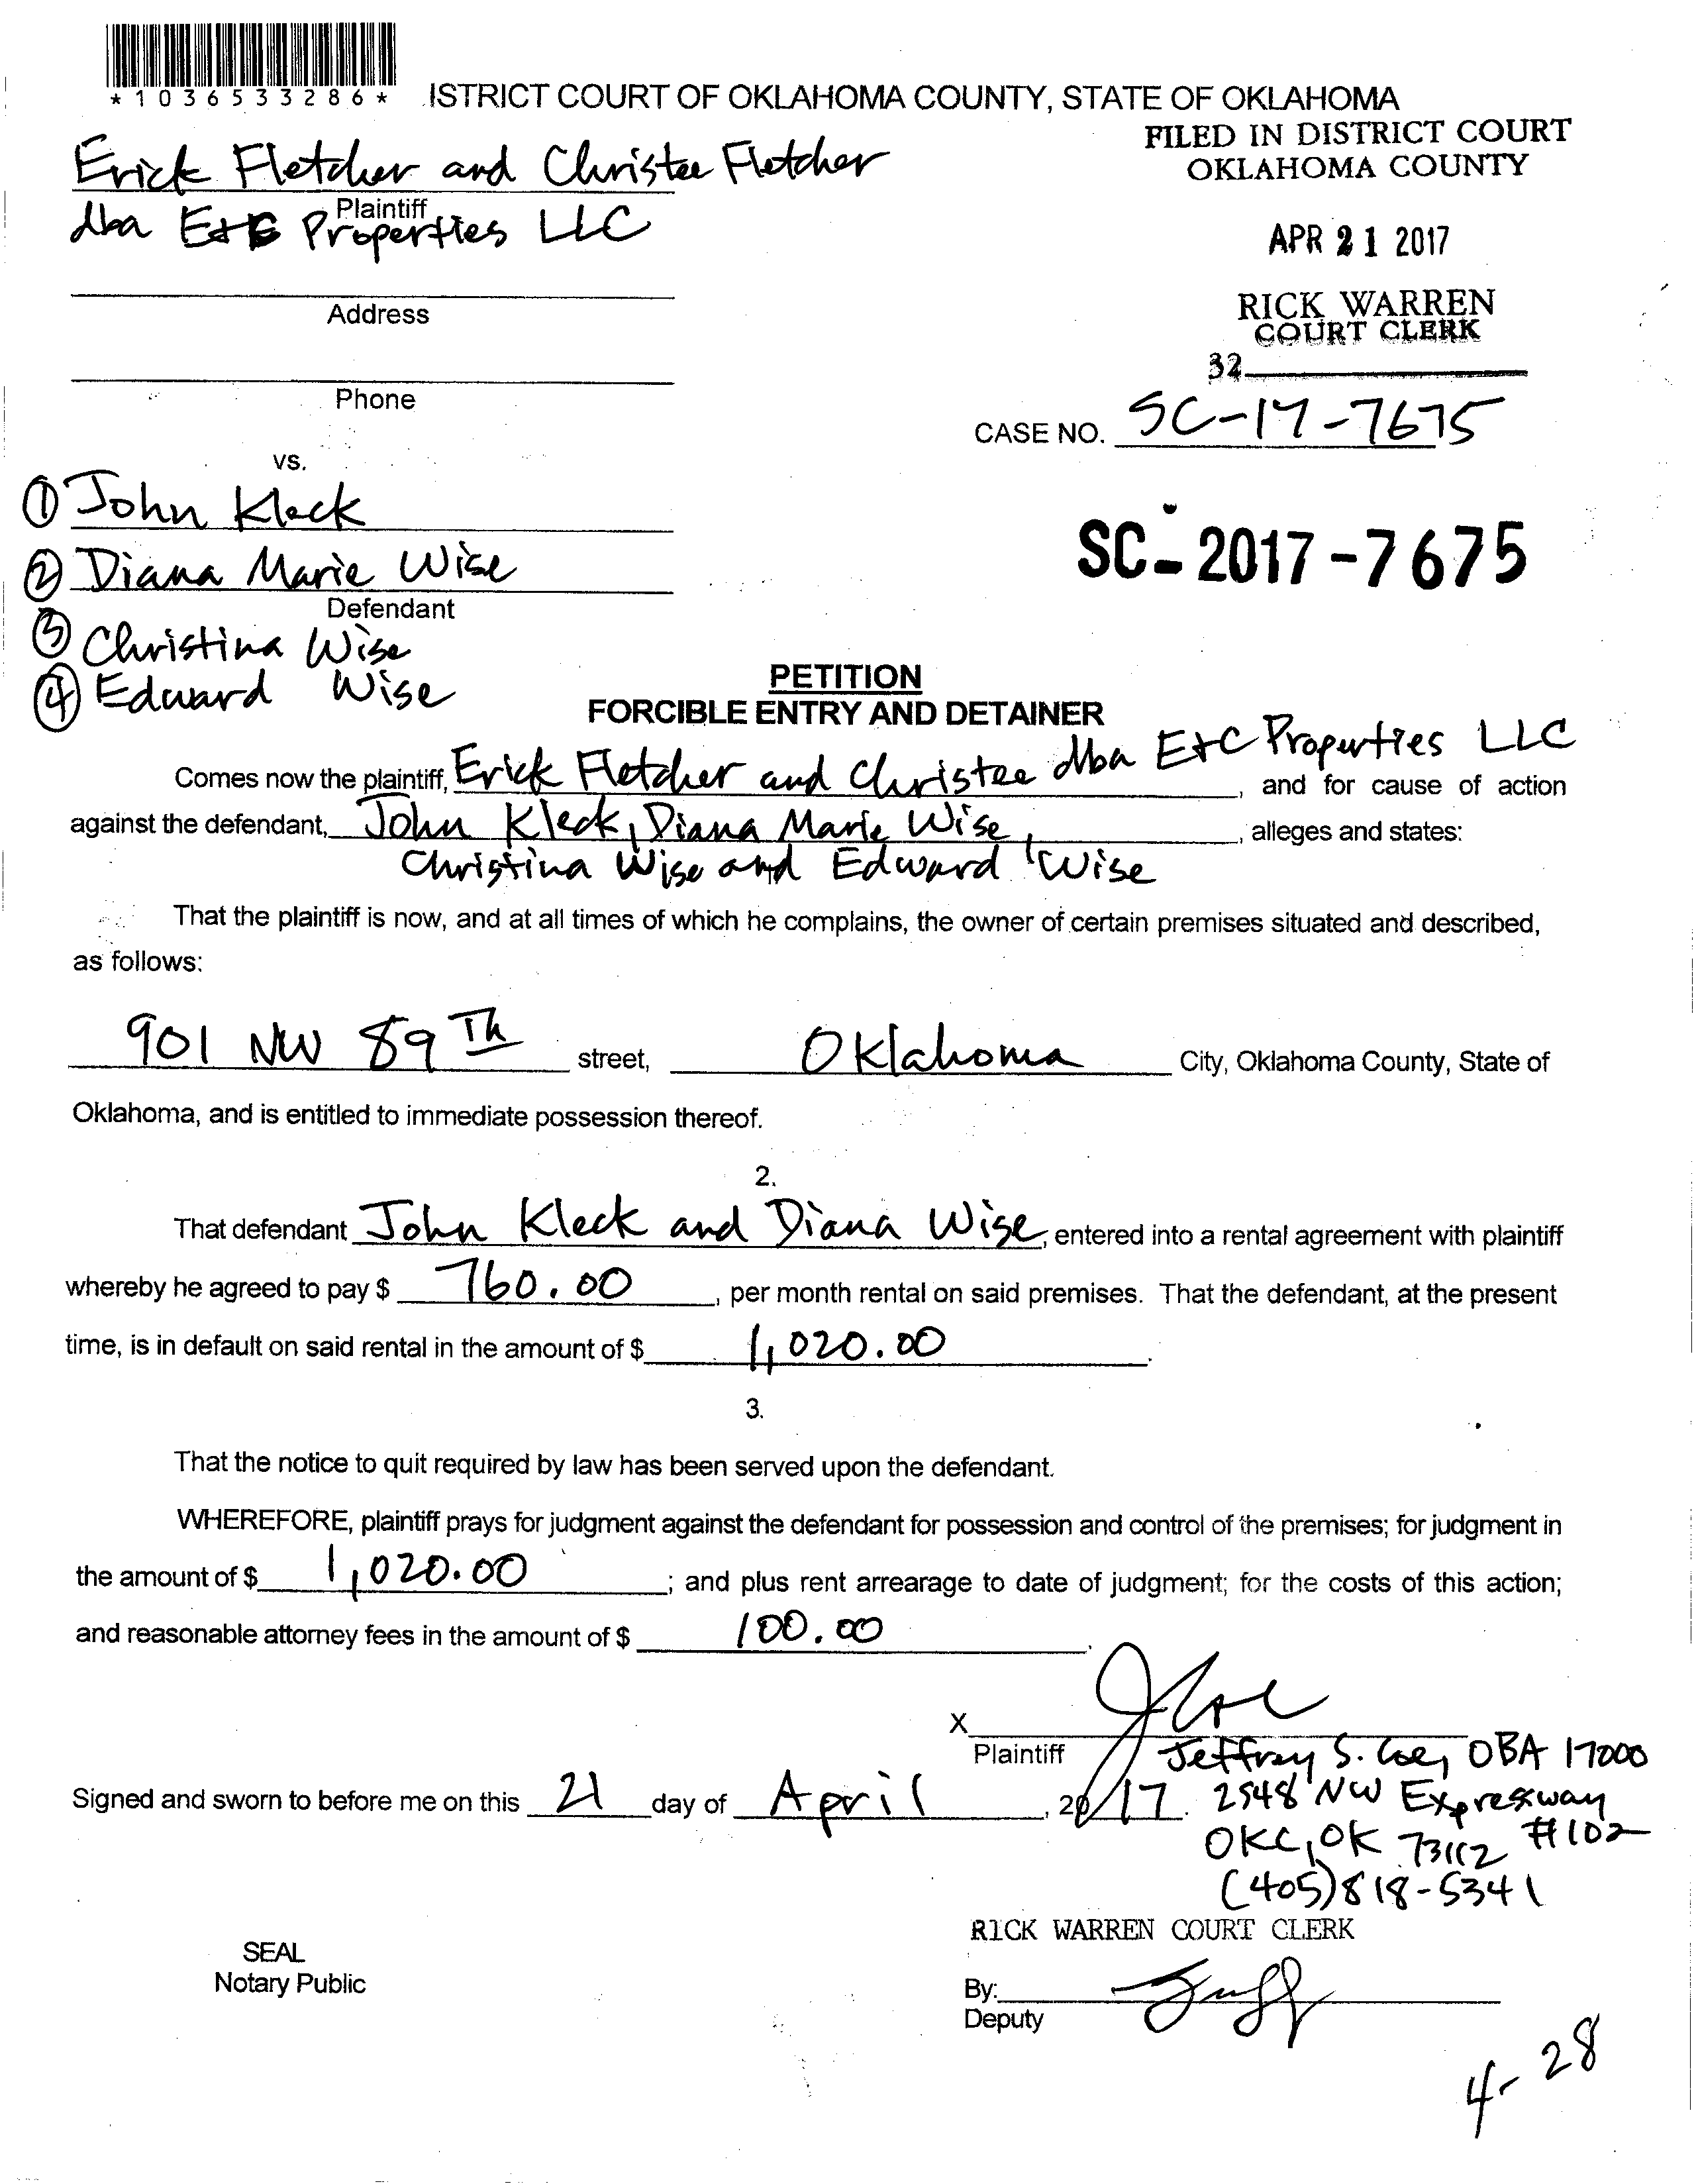 *1036533286*
ISTRICT COURT OF OKLAHOMA COUNTY, STATE OF OKLAHOMA
FILED IN DISTRICT COURT
OKLAHOMA COUNTY
Erick Fletcher and Christee Fletcher
Plaintiff
dba E+C Properties LLC
APR 21 2017
Address
RICK WARREN
COURT CLERK
32
Phone
CASE NO. SC-17-7675
vs.
① John Kleck
SC-2017-7675
② Diana Marie Wise
Defendant
③ Christina Wise
④ Edward Wise
PETITION
FORCIBLE ENTRY AND DETAINER
Comes now the plaintiff, Erick Fletcher and Christee dba E+C Properties LLC, and for cause of action
against the defendant, John Kleck, Diana Marie Wise, , alleges and states:
Christina Wise and Edward Wise
That the plaintiff is now, and at all times of which he complains, the owner of certain premises situated and described,
as follows:
901 NW 89Th street, Oklahoma City, Oklahoma County, State of
Oklahoma, and is entitled to immediate possession thereof.
2.
That defendant John Kleck and Diana Wise, entered into a rental agreement with plaintiff
whereby he agreed to pay $ 760.00, per month rental on said premises. That the defendant, at the present
time, is in default on said rental in the amount of $ 1,020.00.
3.
That the notice to quit required by law has been served upon the defendant.
WHEREFORE, plaintiff prays for judgment against the defendant for possession and control of the premises; for judgment in
the amount of $ 1,020.00; and plus rent arrearage to date of judgment; for the costs of this action;
and reasonable attorney fees in the amount of $ 100.00.
X
Plaintiff Jeffrey S. Coe, OBA 17000
Signed and sworn to before me on this 21 day of April, 2017. 2548 NW Expressway
#102
OKC, OK 73112
(405) 818-5341
RICK WARREN COURT CLERK
SEAL
Notary Public
By:
Deputy
4-28